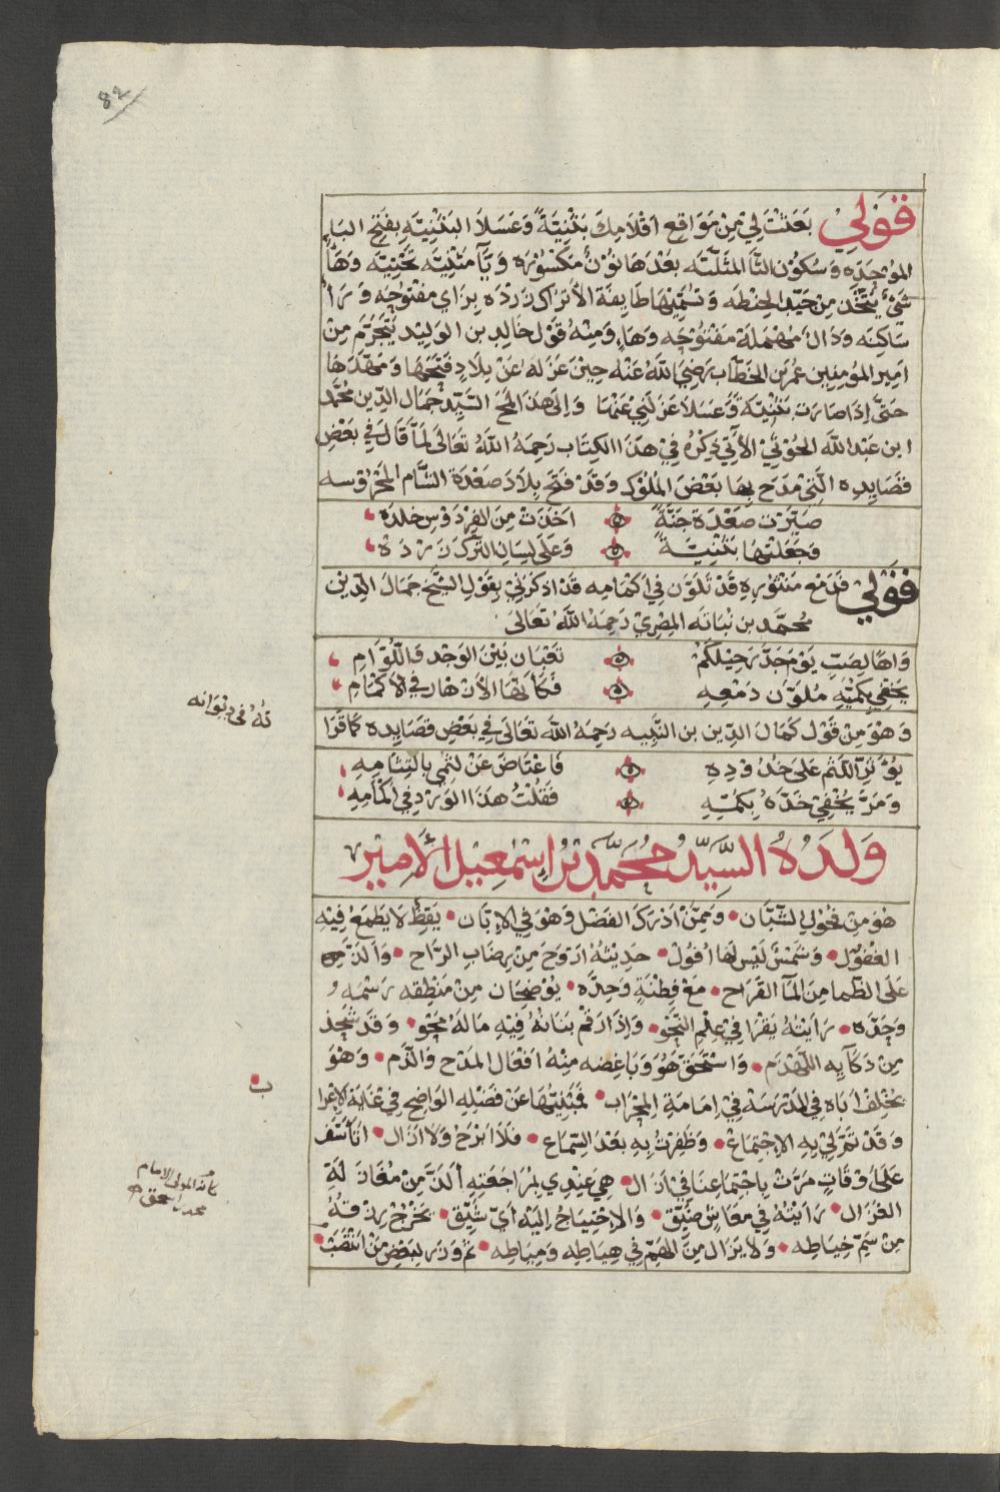 82
قَوْلي بَعَثْتَ لِيْ مِنْ مَوَاقِع اَقْلَامِكَ بَثْنِيَّةً وَعَسَلاً البَثَنِيَّةِ بفتح البَاءِ
الموحدَه وَسُكُوْن الثّا المثَلّثَه بَعْدَهَا نُوْن مَكْسُوْرَه وَيَآ مَثْنَيّه تَحْتِيّه وَهَا
شَيْء يُتَّخَذ مِن جَيّد الحِنْطَه وَتسَمّيْهَا طَايِفَة الأَتراك زَرْدَه بِزاي مفتوحه وَرا
سَاكِنه وَدَال مُهْمَلة مَفْتُوْحَه وَهَاءٍ وَمِنْهُ قَوْل خَالِد بن الوَلِيْد مِنْ
امِيْر المومِنِيْن عُمَر بن الخطّاب رَضِيَ اللهُ عَنْهُ حِيْنَ عَزَلهُ عَنْ بِلَادٍ فَتَحَهَا وَمَهّدَهَا
حَتَّى اِذَا صَارت بَثنِيّةً وَعَسَلاً عَزَلَنِيْ عَنْهَا وَاِلىَ هَذَ المح السَّيِّد جَمَال الدّين محَمّد
ابن عَبد الله الحُوْثِيْ الأتي ذِكْرُه فيْ هذَا الكِتَاب رَحِمَهُ اللهُ تَعَالَى لَمّا قَالَ فِيْ بَعْضِ
قَصَايِدِه الَّتِيْ مَدَح بِهَا بَعْض المُلُوك وَقَدْ فَتَحَ بِلَادَ صَعْدَة الشَّام المحروسه
صَيّرْت صَعْدَة جَنَّةً اَخَذَتْ مِنَ الفِرْدَوْسِ خلدَه
وَجَعَلْتَهَا بَثْنِيّةً وَعَلَى لِسَان التّرك زَرْدَه
فقَوْلي قَدَمْع مَنثوْرِهِ قَدْ تَلَوّن فِي اَكمَامِه قَدْ اذكَرَنِيْ بِقَوْلِ الشّيْخ جَمَال الدّين
مُحَمّد بن نُبَاتَه المِصْرِيّ رَحِمَهُ اللهُ تَعَالَى
وَاهًا لِصَبّ يَوْم جَدَّ رَحِيْلكُم تَعْبَان بَيْنَ الوَجد وَاللّوَّامِ
يُخْفِي بِكمّيْهِ مُلَوَّن دَمْعِهِ فَكَأنّهَا الأَزهَار فِي الأكمَامِ
وَهْوَ مِنْ قَوْل كمَال الدّين بن النّبِيْه رَحِمَهُ الله تَعَالَى فِيْ بَعْض قَصَايِده كمَا قَرَا
يُؤثر اللّثم عَلىَ خدوْدِهِ فَاعْتَاضَ عَنْ لَثمِى بِالتِثَامِهِ
وَمَرَّ يُخْفِيْ خَدّهُ بِكُمّهِ فَقُلْتُ هَذَا الوَرْد فِي اكمامِهِ
وَلَدُهُ السَّيِّدُ مُحَمَّدُ بْنُ اِسْمٰعِيْلَ الأَمِيْر
هُوَ مِنْ فحُوْلِ الشّبَّان وَمِمَّنْ اَدْرَكَ الفَضْل وَهْوَ فِي الإِبّان يَقِظ لَا يَطْمَعُ فِيْهِ
الغفوْل وَشَمْسٌ لَيْسَ لَهَا اُفُوْلْ حَدِيْثُهُ اَرْوَح مِنْ رِضَابِ الرّاح وَاَلَذّ
عَلَى الظّمَا مِنَ المَآ القَرَاح مَعْ فِطْنَةٍ وَحِدّه يُوْضِحَان مِنْ مَنْطِقه رَسْمَه
وَحَدّه رَايْتُهُ يَقْرَا فِيْ عِلْمِ النّحْو وَاِذَا رَقَم بَنَانهُ فِيْهِ مَا لَهُ مَحْو وَقَد شحذ
مِنْ ذكَآيِه اللّهْذَم وَاسْتَحَقّ هُوَ وَبَاغِضه مِنْهُ اَفْعَال المَدْح وَالذّم وَهْوَ
يَخْلِف اَبَاه فِي المَدْرسَه فيْ اِمَامَةِ المِحْرَاب فَنَبَتهَا عَنْ فَضْلِهِ الوَاضِح فِيْ غَايَة الإعْرا
وَقَدْ تمّ لِيْ بِهِ الإِجْتِمَاع وَظَفِرْتُ بِهِ بَعْدَ السَّمَاع فَلَا اَبْرَحْ وَلَا ازَال اتاَسّف
عَلَى اَوْقَاتٍ مَرّتْ بِاجْتِمَاعِنَا فيْ ازَال هِيَ عِنْدِي بِمُرَاجَعَتِهِ اَلَذّ مِنْ مُغَازَلَةِ
الغَزَال رَايْتُهُ فيْ مَعَاشٍ ضَيّق وَالإِحْتِيَاجُ اِلَيْهِ اَيّ شَيّق يَخْرجُ رِزْقهُ
مِنْ سمِّ خِيَاطِه وَلَا يَزَال مِنَ الهَمّ فِي هِيَاطِه وَمِيَاطِه
لهُ فى ديوانه
ب
محمد بن اسحق